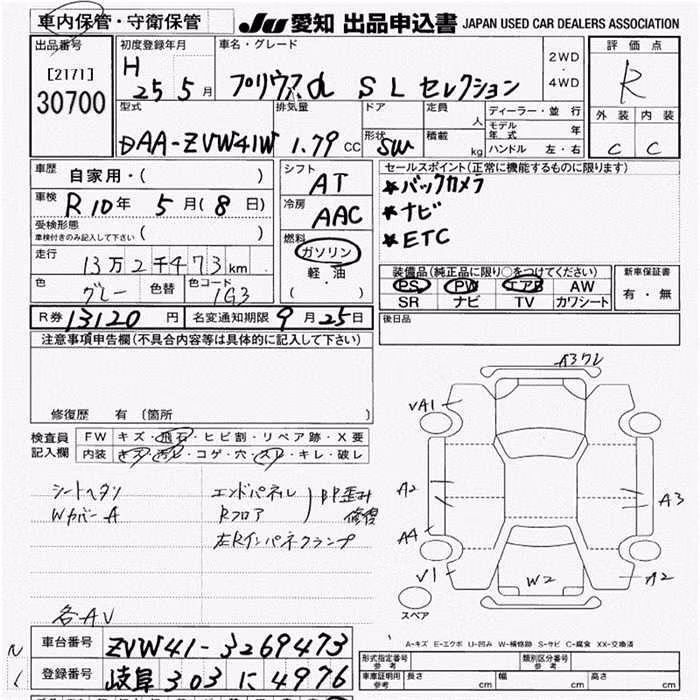 車内保管・守衛保管
JU 愛知 出品申込書 JAPAN USED CAR DEALERS ASSOCIATION
出品番号
[2171]
30700
初度登録年月
H 25 5 月
車名・グレード
プリウスα S L セレクション
2WD
・
4WD
評価点
R
外装 内装
C C
型式
DAA-ZVW41W
排気量
1.79 CC
ドア
形状 SW
定員 人
積載 kg
ディーラー・並行
モデル年式 年
ハンドル 左・右
車歴
自家用・( )
車検
R10年 5月(8日)
受検形態
車検付きのみ記入して下さい ( )
走行
13万2千473km
色 グレー 色替 色コード 1G3
シフト
AT
冷房
AAC
燃料
ガソリン
軽・油
( )
セールスポイント(正常に機能するものに限ります)
★バックカメラ
★ナビ
★ETC
装備品(純正品に限り○をつけてください)
PS PW エアB AW
SR ナビ TV カワシート
新車保証書
有・無
R券 13120 円 名変通知期限 9月25日
後日品
注意事項申告欄(不具合内容等は具体的に記入して下さい)
修復歴 有 [箇所 ]
検査員記入欄
FW キズ・飛石・ヒビ割・リペア跡・X要
内装 キズ・汚レ・コゲ・穴・スレ・キレ・破レ
シートヘタリ
WカバーA
エンドパネル
Rフロア
BP歪み
修復
左Rインパネクランプ
各AV
A3ワレ
VA1
A2
A4
V1
W2
A3
A2
スペア
A-キズ E-エクボ U-凹み W-補修跡 S-サビ C-腐食 XX-交換済
車台番号 ZVW41-3269473
登録番号 岐阜 303 に 4976
形式指定番号 参考
類別区分番号 参考
車庫証明用 参考 長さ cm 幅 cm 高さ cm